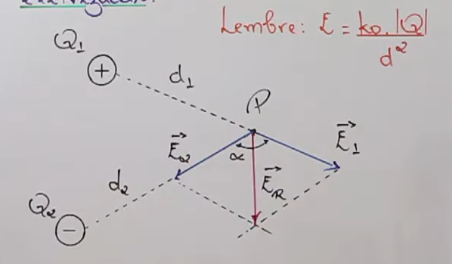 Lembre: E = k₀.|Q|
d²
Q₁
+
d₁
P
E₂
α
E₁
E_R
d₂
Q₂
−